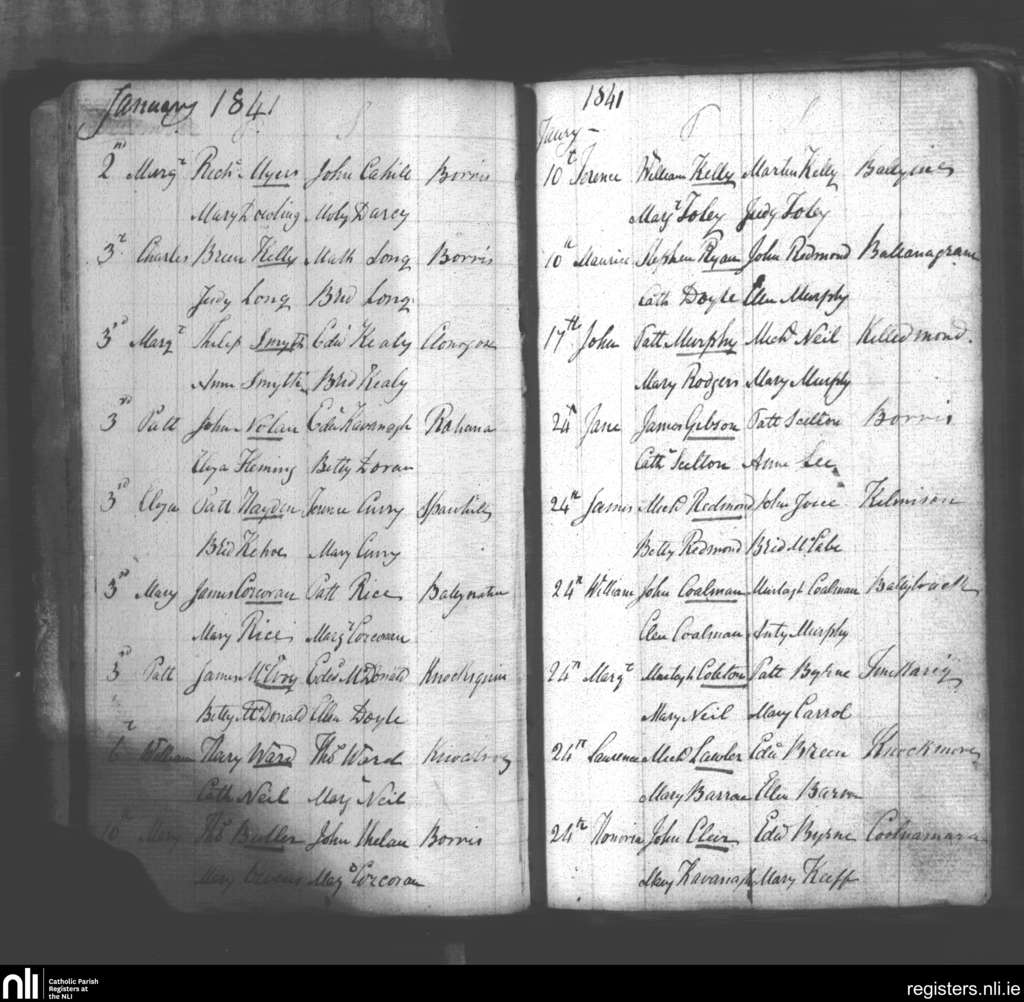 January 1841
2nd Margt Richd Myers John Cahill Borris
Mary Dowling Moby Darcy
3d Charles Breen Kelly Math Long Borris
Judy Long Brid Long
3rd Margt Philip Smyth Edwd Kealy Clonygose
Anne Smyth Brid Kealy
3rd Patt John Nolan Edwd Kavanagh Rahana
Eliza Fleming Betty Doran
3rd Eliza Patt Hayden Terence Curry Spawhill
Brid Kehoe Mary Curry
3rd Mary James Corcoran Patt Rice
Mary Rice Margt Corcoran
3rd Patt James McEvoy Edwd McDonald Knocksquire
Betty McDonald Ellen Doyle
6t William Ward Thos Ward
Cath Neil Mary Neil
10th Mary Thos Butler John Whelan Borris
Mary Margt Corcoran
1841
Jany
10t Terence William Kelly Martin Kelly
Margt Foley Judy Foley
10th Maurice Stephen Ryan John Redmond Ballanagram
Cath Doyle Ellen Murphy
17th John Patt Murphy Mich Neil Killedmond.
Mary Rodgers Mary Murphy
24th Jane James Gibson Patt Scelton Borris
Cath Scelton Anne Lee
24th James Mich Redmond John Joice Kilmison
Betty Redmond Brid McCabe
24th William John Coalman Murtagh Coalman
Elen Coalman Anty Murphy
24th Margt Murtagh Patt Byrne
Mary Neil Mary Carrol
24th Laurence Mich Lawler Edwd Breen Knockmore
Mary Barron Ellen Barron
24th Honoria John Clear Edwd Byrne
Mary Kavanagh Mary Keeff
nli
Catholic Parish
Registers at
the NLI
registers.nli.ie